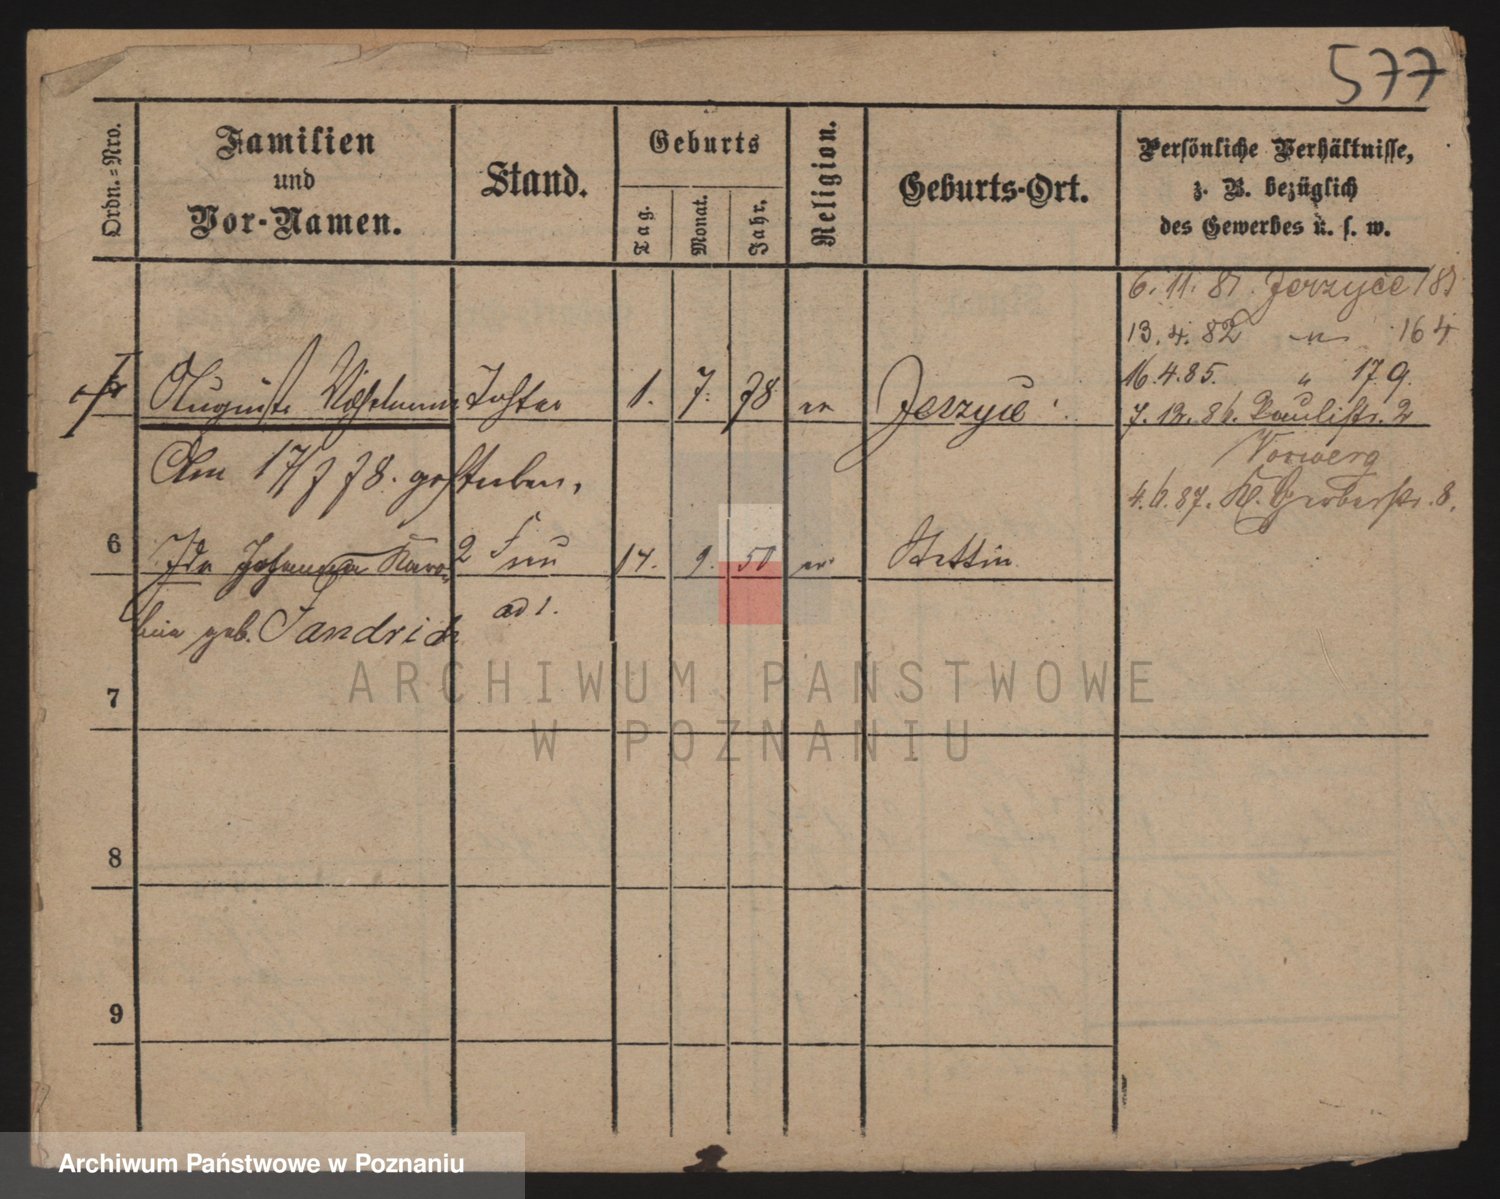 577
Ordn.=Nro.
Familien
und
Vor-Namen.
Stand.
Geburts
Tag.
Monat.
Jahr.
Religion.
Geburts-Ort.
Persönliche Verhältnisse,
z. B. bezüglich
des Gewerbes u. s. w.
6.11.81. Jerzyce 183
13.4.82 " 164
16.4.85. " 179.
7.12.86. Paulistr. 2
Vorwerg
4.6.87. Kl. Gerberstr. 8.
Auguste Tochter 1. 7. 78 ev Jerzyce
Am 17/7 78. gestorben.
6 Ida Johanna Karo- 2 Frau 14. 9. 50 ev Stettin
line geb. Jandrich ad 1.
7
8
9
ARCHIWUM PAŃSTWOWE
W POZNANIU
Archiwum Państwowe w Poznaniu